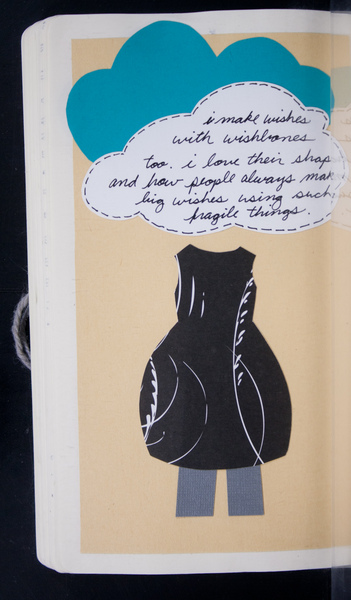 i make wishes
with wishbones
too. i love their shap
and how people always mak
big wishes using such
fragile things.